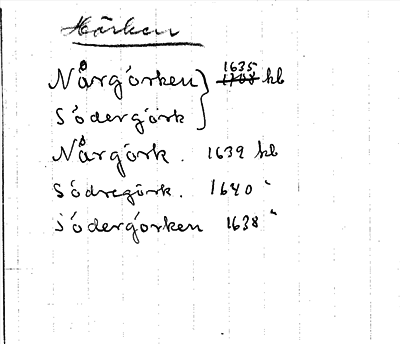 Hörken
Nårgörken } 1635 1708 kb
Södergörk
Nårgörk. 1639 kb
Södregörk. 1640 "
Södergörken 1638 "